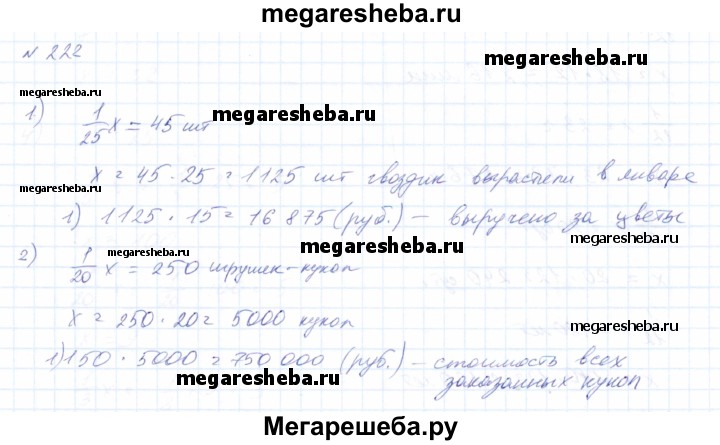 megaresheba.ru
№ 222
megaresheba.ru
1) 1/25 x = 45 шт
megaresheba.ru
x = 45 · 25 = 1125 шт гвоздик вырастели в январе
megaresheba.ru
1) 1125 · 15 = 16 875 (руб.) – выручено за цветы
megaresheba.ru
megaresheba.ru
megaresheba.ru
2) 1/20 x = 250 игрушек-кукол
x = 250 · 20 = 5000 кукол
megaresheba.ru
1) 150 · 5000 = 750 000 (руб.) – стоимость всех
заказанных кукол
megaresheba.ru
Мегарешеба.ру